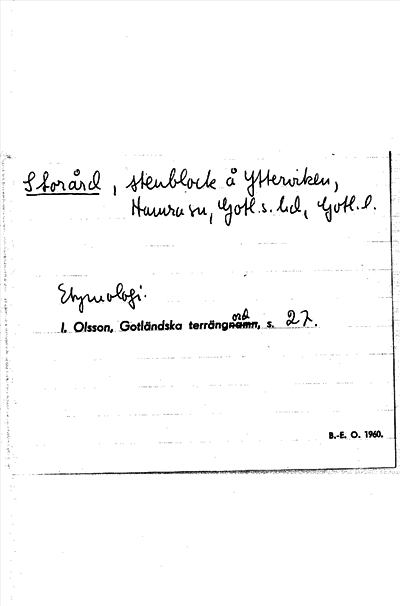 Storård, stenblock å Ytterviken,
Hamra sn, Gotl. s. hd, Gotl. l.
Etymologi.
I. Olsson, Gotländska terrängnamn ord, s. 27.
B.-E. O. 1960.